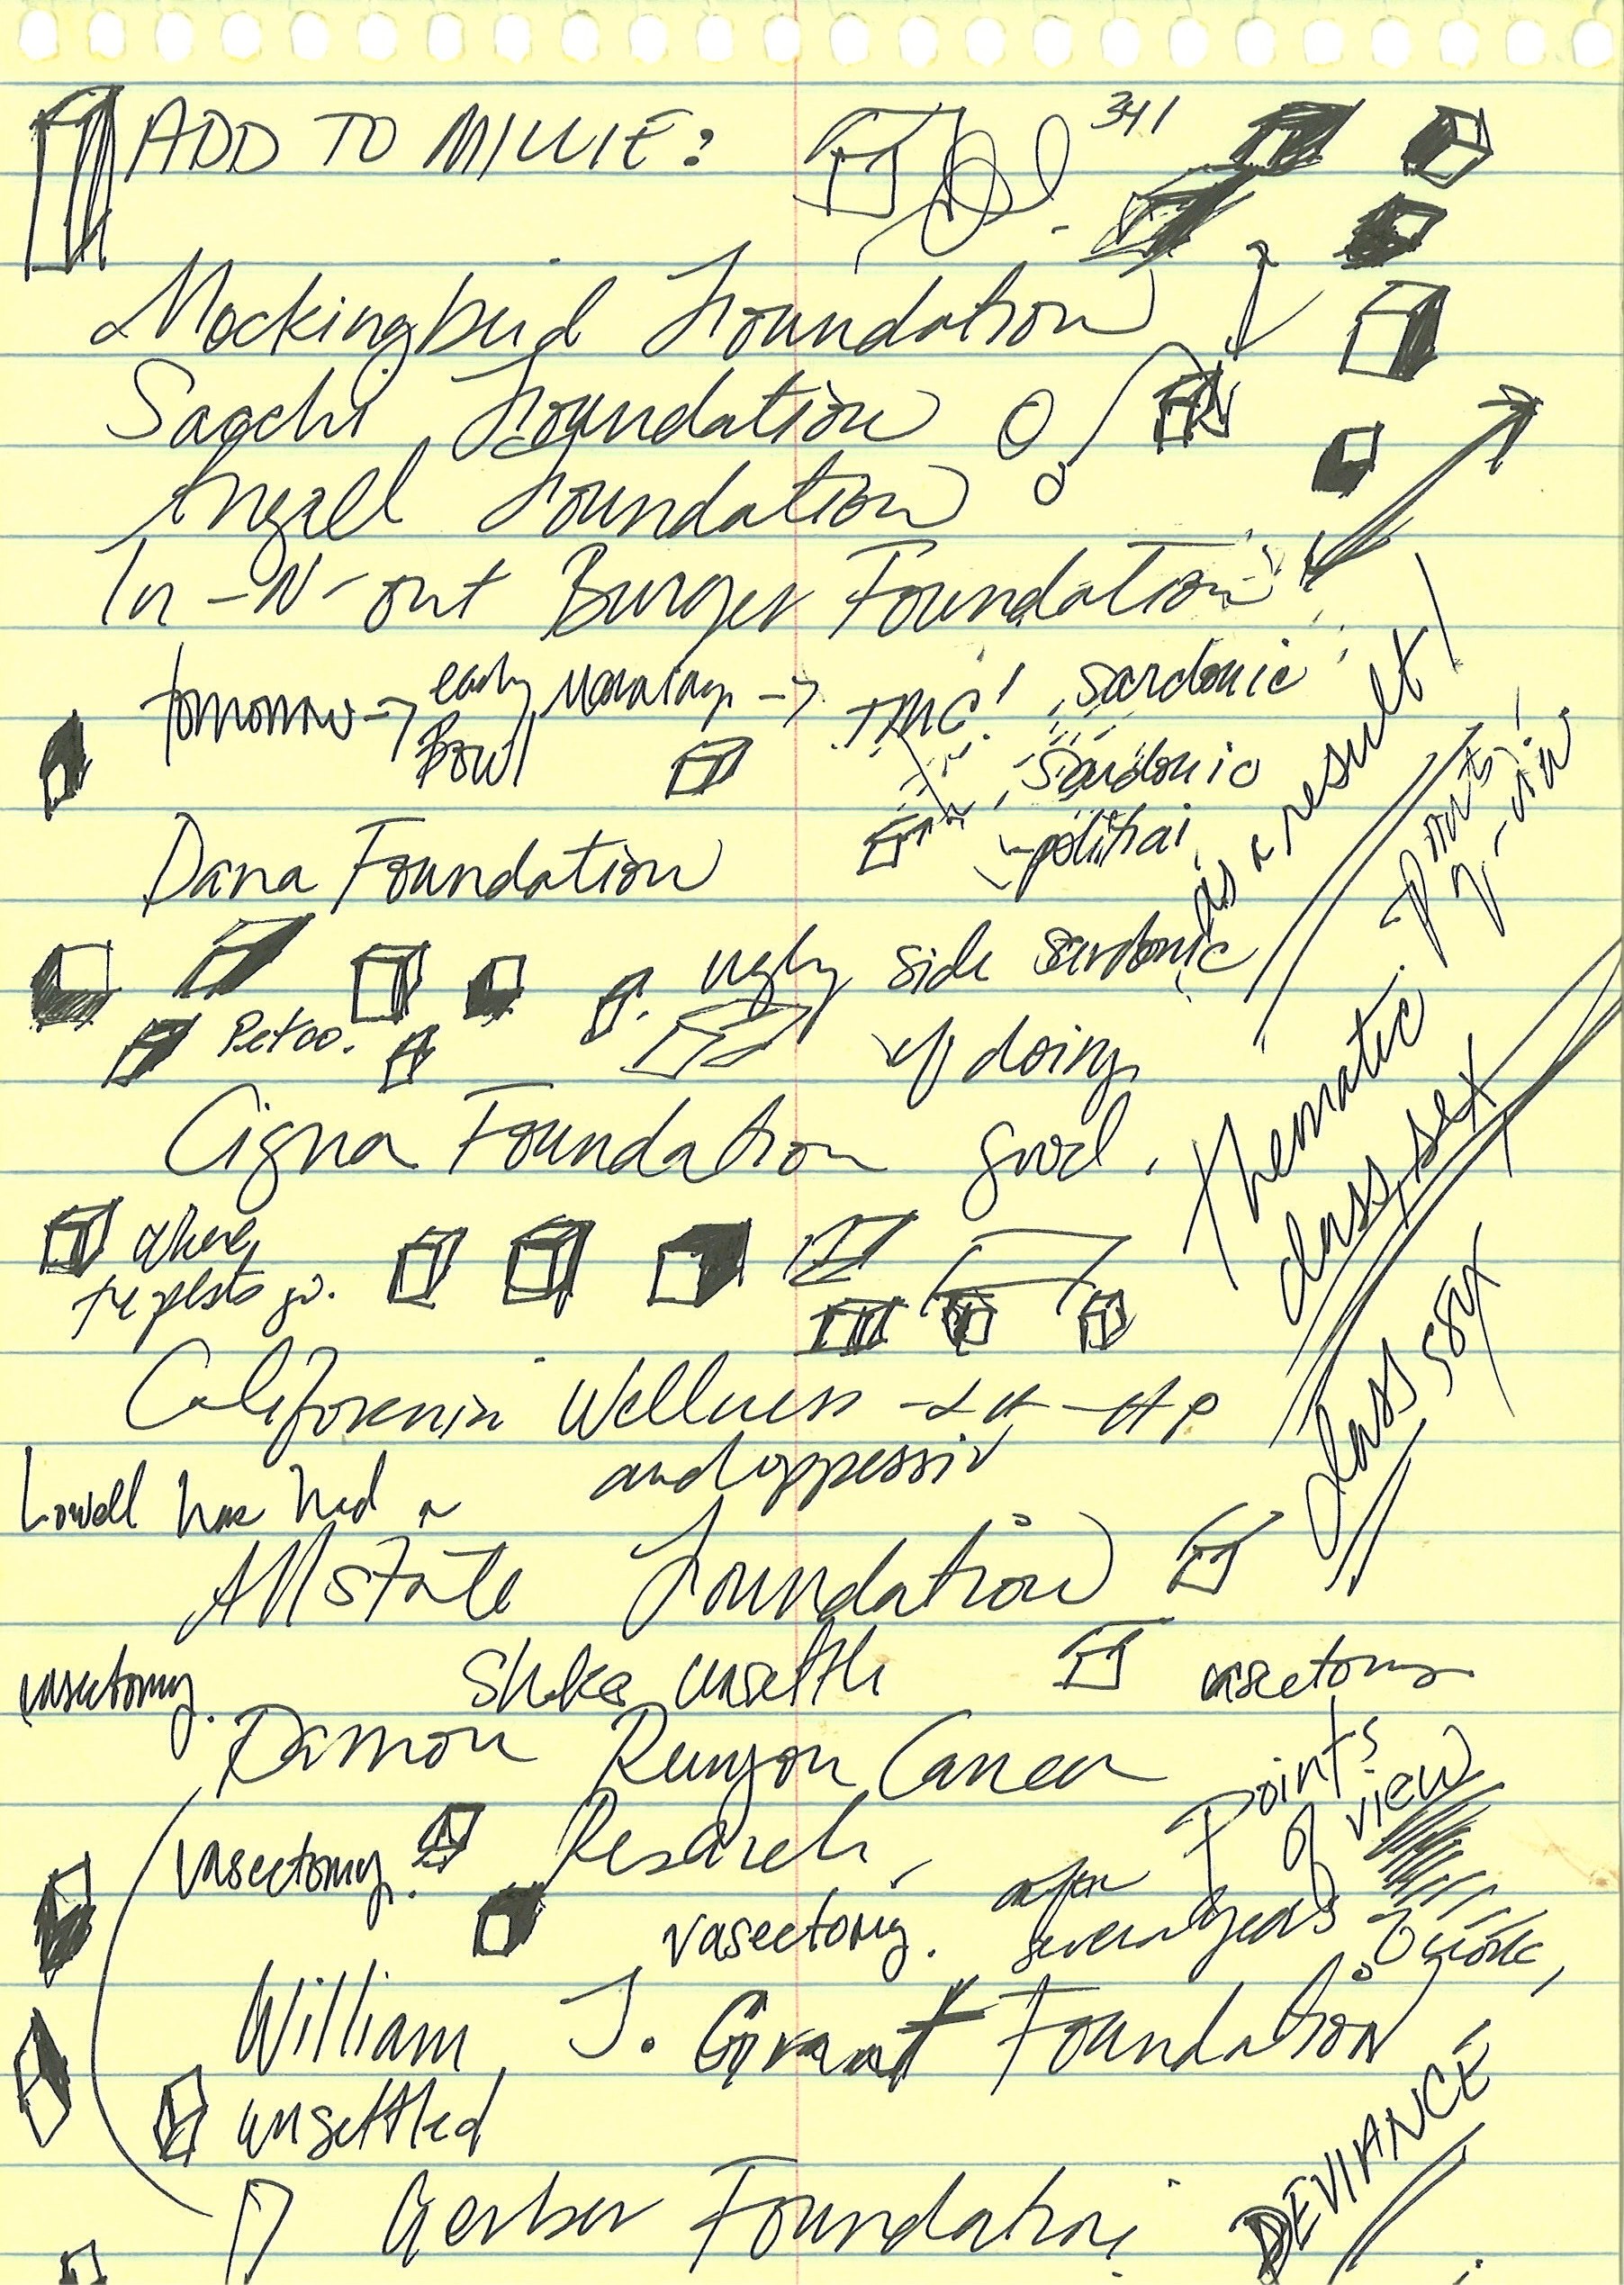 ADD TO MILLIE:
341
Mockingbird Foundation
Foundation
Angell Foundation
In-N-Out Burger Foundation
tomorrow → early morning → TMC!
Bowl
sardonic
sardonic
as a result!
Dana Foundation
ugly side sardonic
of doing
good.
Petco.
Cigna Foundation
Thematic
class, sex
where
the pests go.
class sex
California Wellness
and oppressiv
Lowell has had a
Allstate Foundation
vasectomy.
unsettle
vasectomy
Damon Runyon Cancer
Research
Points
of view
vasectomy.
vasectomy.
after
seven years
William T. Grant Foundation
unsettled
DEVIANCE
Gerber Foundation